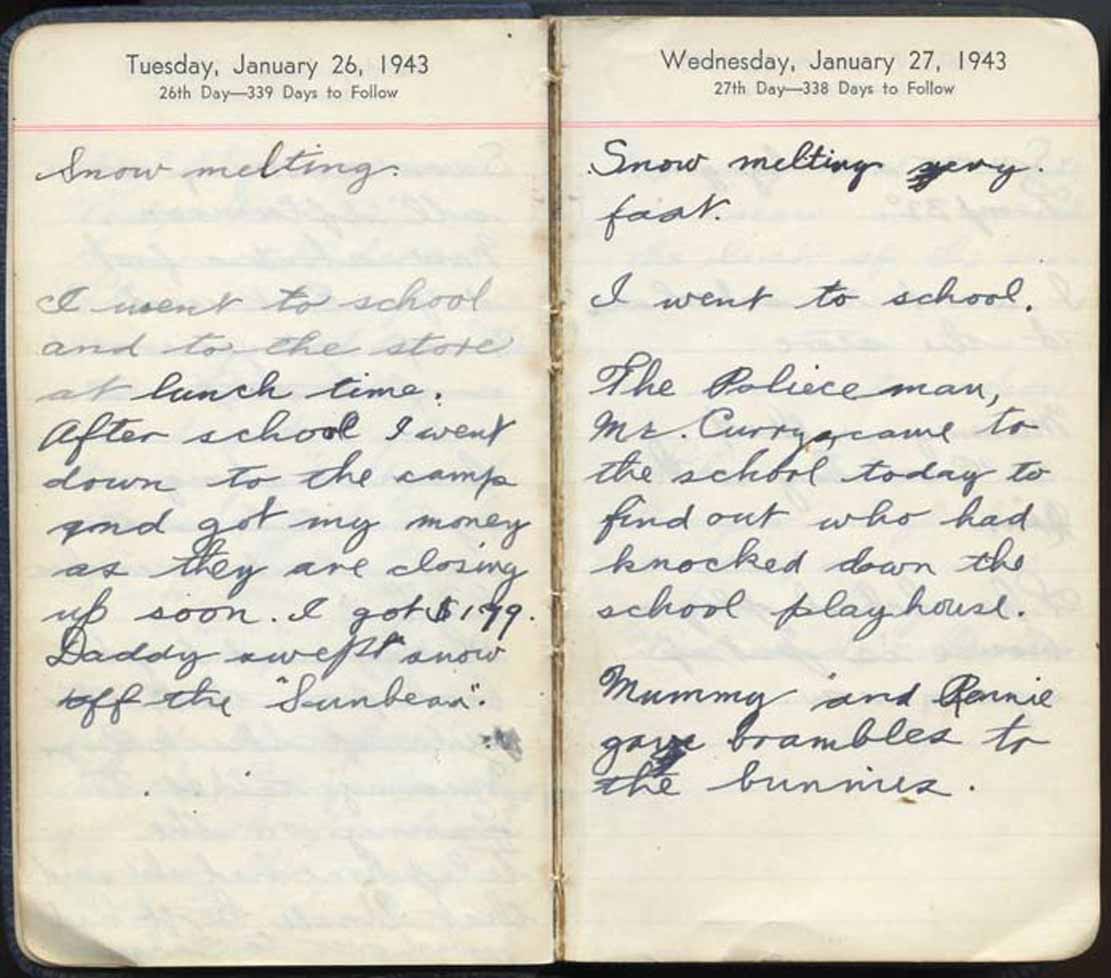 Tuesday, January 26, 1943
26th Day—339 Days to Follow
Snow melting.
I went to school
and to the store
at lunch time.
After school I went
down to the camp
and got my money
as they are closing
up soon. I got $1.99.
Daddy swept snow
off the "Sunbeam".
Wednesday, January 27, 1943
27th Day—338 Days to Follow
Snow melting very.
fast.
I went to school.
The Police man,
Mr. Curry, came to
the school today to
find out who had
knocked down the
school playhouse.
Mummy and Rennie
gave brambles to
the bunnies.